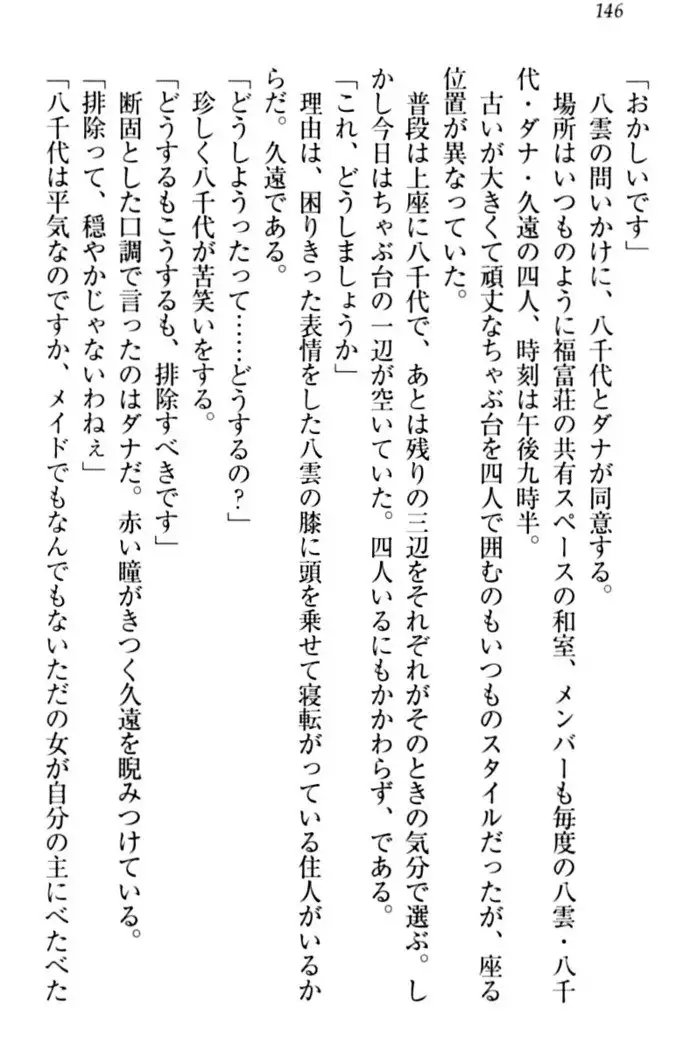 146
「おかしいです」
　八雲の問いかけに、八千代とダナが同意する。
　場所はいつものように福富荘の共有スペースの和室、メンバーも毎度の八雲・八千
代・ダナ・久遠の四人、時刻は午後九時半。
　古いが大きくて頑丈なちゃぶ台を四人で囲むのもいつものスタイルだったが、座る
位置が異なっていた。
　普段は上座に八千代で、あとは残りの三辺をそれぞれがそのときの気分で選ぶ。し
かし今日はちゃぶ台の一辺が空いていた。四人いるにもかかわらず、である。
「これ、どうしましょうか」
　理由は、困りきった表情をした八雲の膝に頭を乗せて寝転がっている住人がいるか
らだ。久遠である。
「どうしようったって……どうするの？」
　珍しく八千代が苦笑いをする。
「どうするもこうするも、排除すべきです」
　断固とした口調で言ったのはダナだ。赤い瞳がきつく久遠を睨みつけている。
「排除って、穏やかじゃないわねぇ」
「八千代は平気なのですか、メイドでもなんでもないただの女が自分の主にべたべた